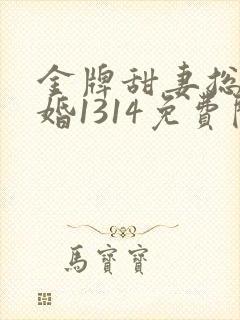 金牌甜妻总
婚1314免費
馬寶寶